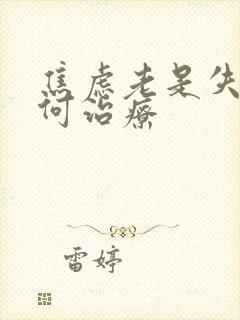 焦虑老是失
何治疗
雷婷